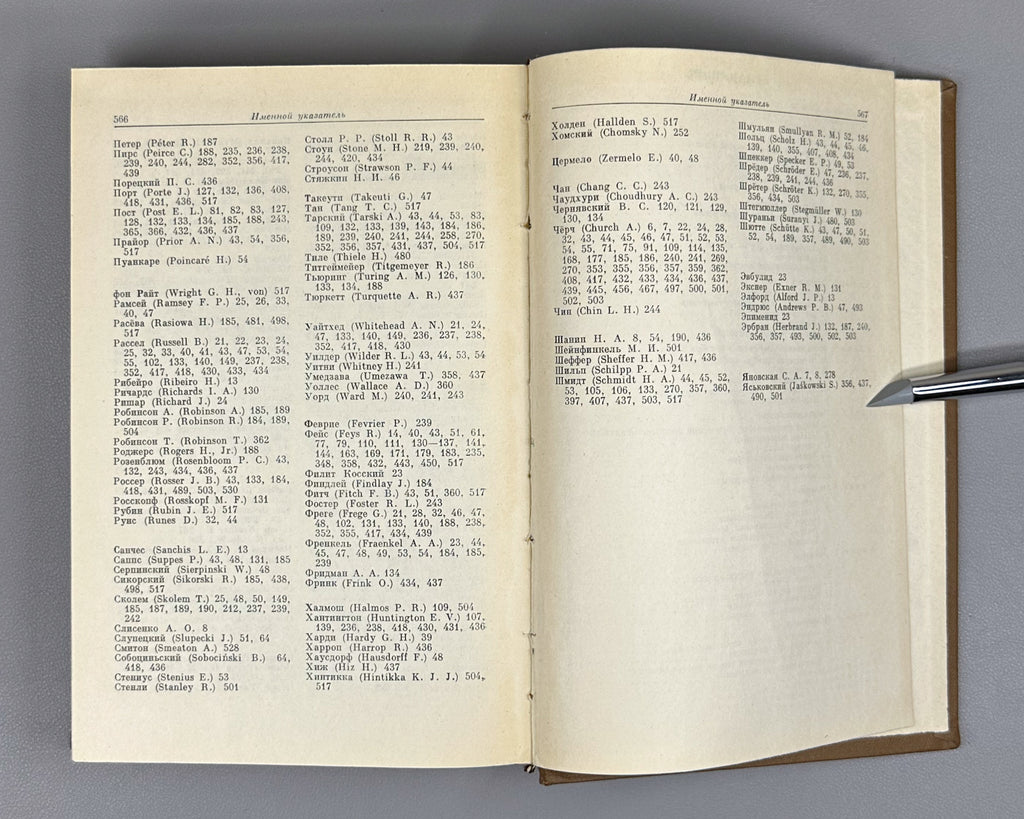 566
Именной указатель
Петер (Péter R.) 187
Пирс (Peirce C.) 188, 235, 236, 238,
239, 240, 244, 282, 352, 356, 417,
439
Порецкий П. С. 436
Порт (Porte J.) 127, 132, 136, 408,
418, 431, 436, 517
Пост (Post E. L.) 81, 82, 83, 127,
128, 132, 133, 134, 185, 188, 243,
365, 366, 432, 436, 437
Прайор (Prior A. N.) 43, 54, 356,
517
Пуанкаре (Poincaré H.) 54
фон Райт (Wright G. H., von) 517
Рамсей (Ramsey F. P.) 25, 26, 33,
40, 47
Расёва (Rasiowa H.) 185, 481, 498,
517
Рассел (Russell B.) 21, 22, 23, 24,
25, 32, 33, 40, 41, 43, 47, 53, 54,
55, 102, 133, 140, 149, 237, 238,
352, 417, 418, 430, 433, 434
Рибейро (Ribeiro H.) 13
Ричардс (Richards I. A.) 130
Ришар (Richard J.) 24
Робинсон А. (Robinson A.) 185, 189
Робинсон Р. (Robinson R.) 184, 189,
504
Робинсон Т. (Robinson T.) 362
Роджерс (Rogers H., Jr.) 188
Розенблюм (Rosenbloom P. C.) 43,
132, 243, 434, 436, 437
Россер (Rosser J. B.) 43, 133, 184,
418, 431, 489, 503, 530
Росскопф (Rosskopf M. F.) 131
Рубин (Rubin J. E.) 517
Рунс (Runes D.) 32, 44
Санчес (Sanchis L. E.) 13
Саппс (Suppes P.) 43, 48, 131, 185
Серпинский (Sierpinski W.) 48
Сикорский (Sikorski R.) 185, 438,
498, 517
Сколем (Skolem T.) 25, 48, 50, 149,
185, 187, 189, 190, 212, 237, 239,
242
Слисенко А. О. 8
Слупецкий (Slupecki J.) 51, 64
Смитон (Smeaton A.) 528
Собоциньский (Sobociński B.) 64,
418, 436
Стениус (Stenius E.) 53
Стенли (Stanley R.) 501
Столл Р. Р. (Stoll R. R.) 43
Стоун (Stone M. H.) 219, 239, 240,
244, 420, 434
Строусон (Strawson P. F.) 44
Стяжкин Н. И. 46
Такеути (Takeuti G.) 47
Тан (Tang T. C.) 517
Тарский (Tarski A.) 43, 44, 53, 83,
109, 132, 133, 139, 143, 184, 186,
189, 239, 240, 241, 244, 258, 270,
352, 356, 357, 431, 437, 504, 517
Тиле (Thiele H.) 480
Титгеймейер (Titgemeyer R.) 186
Тьюринг (Turing A. M.) 126, 130,
133, 134, 188
Тюркетт (Turquette A. R.) 437
Уайтхед (Whitehead A. N.) 21, 24,
47, 133, 140, 149, 236, 237, 238,
352, 417, 418, 430
Уилдер (Wilder R. L.) 43, 44, 53, 54
Уитни (Whitney H.) 241
Умедзава (Umezawa T.) 358, 437
Уоллес (Wallace A. D.) 360
Уорд (Ward M.) 240, 241, 243
Феврие (Fevrier P.) 239
Фейс (Feys R.) 14, 40, 43, 51, 61,
77, 79, 110, 111, 130—137, 141,
144, 163, 169, 171, 179, 183, 235,
348, 358, 432, 443, 450, 517
Филит Косский 23
Финдлей (Findlay J.) 184
Фитч (Fitch F. B.) 43, 51, 360, 517
Фостер (Foster R. L.) 243
Фреге (Frege G.) 21, 28, 32, 46, 47,
48, 102, 131, 133, 140, 188, 238,
352, 355, 417, 434, 439
Френкель (Fraenkel A. A.) 23, 44,
45, 47, 48, 49, 53, 54, 184, 185,
239
Фридман А. А. 134
Фринк (Frink O.) 434, 437
Халмош (Halmos P. R.) 109, 504
Хантингтон (Huntington E. V.) 107,
139, 236, 238, 418, 430, 431, 436
Харди (Hardy G. H.) 39
Харроп (Harrop R.) 436
Хаусдорф (Hausdorff F.) 48
Хиж (Hiz H.) 437
Хинтикка (Hintikka K. J. J.) 504,
517
Именной указатель
567
Холден (Hallden S.) 517
Хомский (Chomsky N.) 252
Цермело (Zermelo E.) 40, 48
Чан (Chang C. C.) 243
Чаудхури (Choudhury A. C.) 243
Чернявский В. С. 120, 121, 129,
130, 134
Чёрч (Church A.) 6, 7, 22, 24, 28,
32, 43, 44, 45, 46, 47, 51, 52, 53,
54, 55, 71, 75, 91, 109, 114, 135,
168, 177, 185, 186, 240, 241, 269,
270, 353, 355, 356, 357, 359, 362,
408, 417, 432, 433, 434, 436, 437,
439, 445, 456, 467, 497, 500, 501,
502, 503
Чин (Chin L. H.) 244
Шанин Н. А. 8, 54, 190, 436
Шейнфинкель М. И. 501
Шеффер (Sheffer H. M.) 417, 436
Шильп (Schilpp P. A.) 21
Шмидт (Schmidt H. A.) 44, 45, 52,
53, 105, 106, 133, 270, 357, 360,
397, 407, 437, 503, 517
Шмульян (Smullyan R. M.) 52, 184
Шольц (Scholz H.) 43, 44, 45, 46,
139, 140, 355, 407, 408, 434
Шпеккер (Specker E. P.) 49, 53
Шрёдер (Schröder E.) 47, 236, 237,
238, 239, 241, 244, 436
Шрётер (Schröter K.) 132, 270, 355,
356, 434, 503
Штегмюллер (Stegmüller W.) 130
Шураньи (Suranyi J.) 480, 503
Шютте (Schütte K.) 43, 47, 50, 51,
52, 54, 189, 357, 489, 490, 503
Эвбулид 23
Экснер (Exner R. M.) 131
Элфорд (Alford J. P.) 13
Эндрюс (Andrews P. B.) 47, 493
Эпименид 23
Эрбран (Herbrand J.) 132, 187, 240,
356, 357, 493, 500, 502, 503
Яновская С. А. 7, 8, 278
Яськовский (Jaśkowski S.) 356, 437,
490, 501